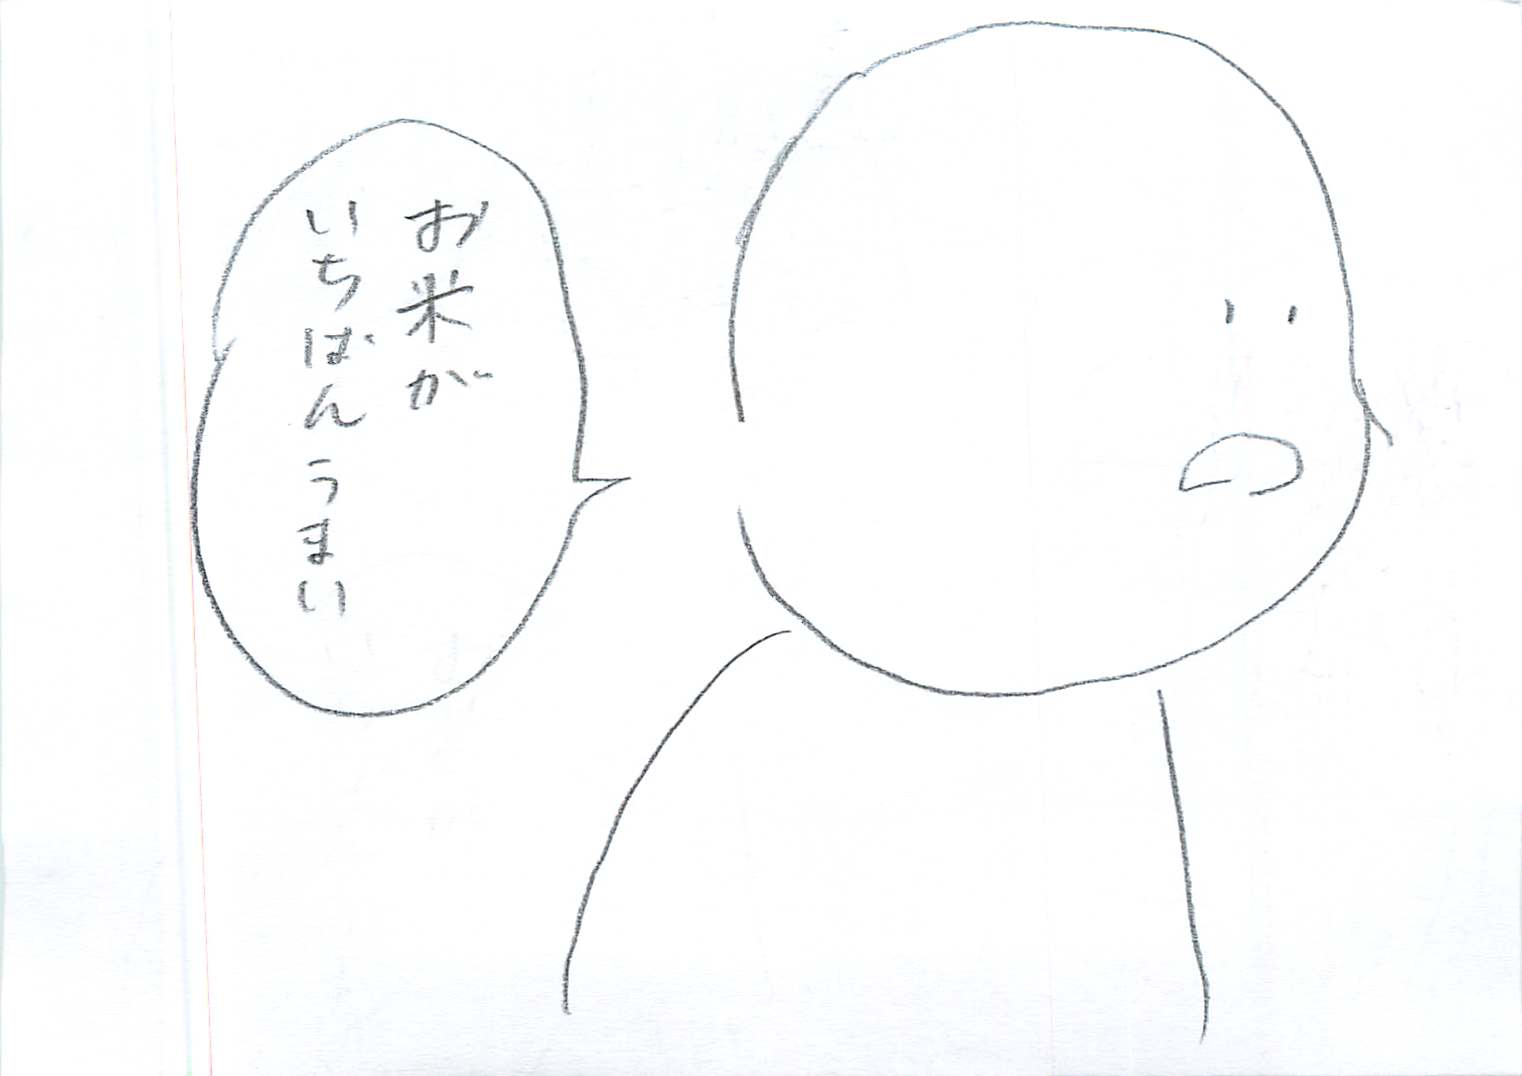 お米が
いちばんうまい